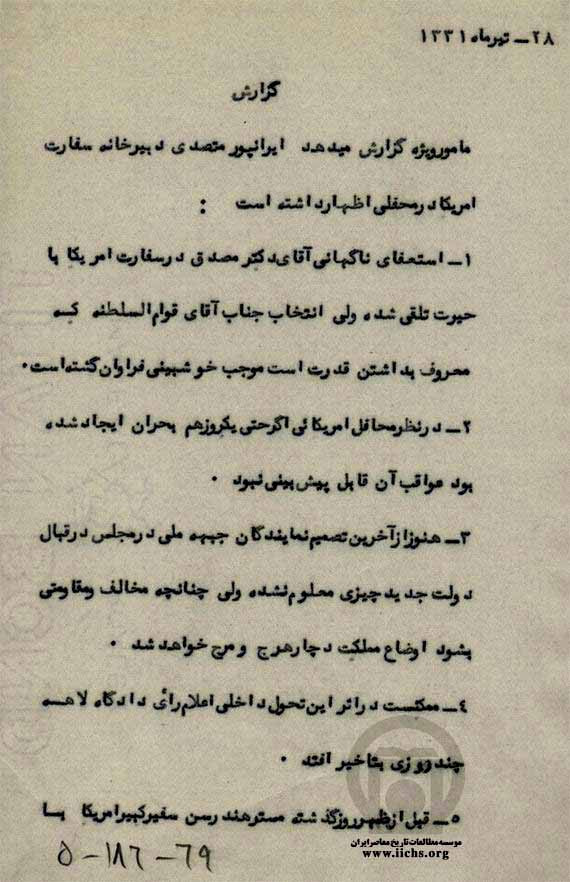 ۲۸ ـ تیرماه ۱۳۳۱
گزارش
مامورویژه گزارش میدهد ایرانپور متصدی دبیرخانه سفارت
امریکا درمحفلی اظهارداشته است :
۱ـ استعفای ناگهانی آقای دکتر مصدق درسفارت امریکا با
حیرت تلقی شده ولی انتخاب جناب آقای قوام السلطنه که
معروف بداشتن قدرت است موجب خوشبینی فراوان گشته است ۰
۲ـ درنظرمحافل امریکائی اگرحتی یکروزهم بحران ایجاد شده
بود عواقب آن قابل پیش بینی نبود ۰
۳ـ هنوز ازآخرین تصمیم نمایندگان جبهه ملی درمجلس درقبال
دولت جدید چیزی معلوم نشده ولی چنانچه مخالف ومقاومتی
بشود اوضاع مملکت دچارهرج و مرج خواهد شد ۰
٤ـ ممکنست دراثر این تحول داخلی اعلام رأی دادگاه لاهه
چند روزی بتأخیر افتد ۰
۵ـ قبل ازظهرروزگذشته مسترهندرسن سفیرکبیرامریکا با
موسسه مطالعات تاریخ معاصر ایران
www.iichs.org
۵-۱۸۶-۷۹